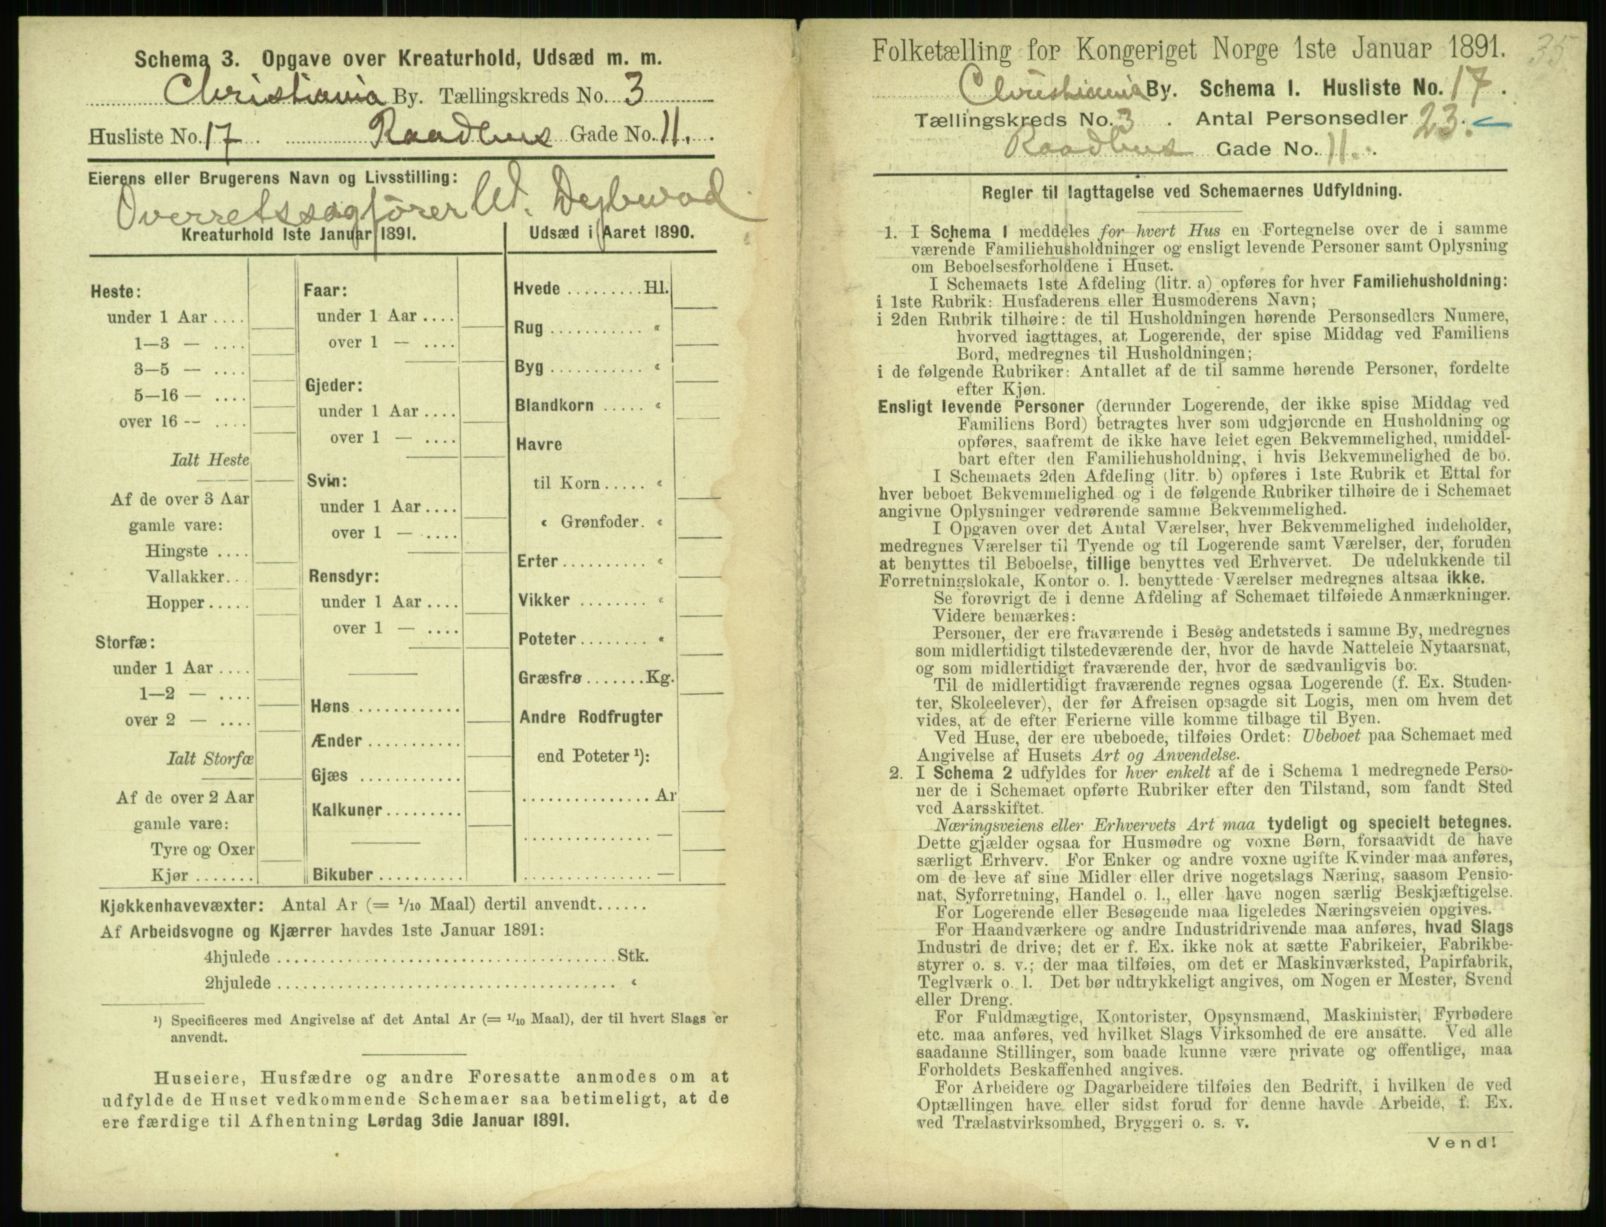 Schema 3. Opgave over Kreaturhold, Udsæd m. m.
Christiania By. Tællingskreds No. 3
Husliste No. 17. Raadhus Gade No. 11.
Eierens eller Brugerens Navn og Livsstilling:
Overretssagfører
Kreaturhold 1ste Januar 1891.
Heste:
under 1 Aar ....
1—3 — ....
3—5 — ....
5—16 — ....
over 16 — ....
Ialt Heste
Af de over 3 Aar
gamle vare:
Hingste ....
Vallakker...
Hopper.....
Storfæ:
under 1 Aar ....
1—2 — ....
over 2 — ....
Ialt Storfæ
Af de over 2 Aar
gamle vare:
Tyre og Oxer
Kjør .......
Faar:
under 1 Aar ....
over 1 — ....
Gjeder:
under 1 Aar ....
over 1 — ....
Svin:
under 1 Aar ....
over 1 — ....
Rensdyr:
under 1 Aar ....
over 1 — ....
Høns ............
Ænder ...........
Gjæs ............
Kalkuner .........
Bikuber ..........
Udsæd i Aaret 1890.
Hvede .........Hl.
Rug .......... «
Byg .......... «
Blandkorn ..... «
Havre
til Korn ..... «
« Grønfoder. «
Erter......... «
Vikker ....... «
Poteter....... «
Græsfrø .......Kg.
Andre Rodfrugter
end Poteter ¹):
...............Ar
............... —
............... —
Kjøkkenhavevæxter: Antal Ar (= 1/10 Maal) dertil anvendt......
Af Arbeidsvogne og Kjærrer havdes 1ste Januar 1891:
4hjulede ......................................Stk.
2hjulede ...................................... «
¹) Specificeres med Angivelse af det Antal Ar (= 1/10 Maal), der til hvert Slags er
anvendt.
Huseiere, Husfædre og andre Foresatte anmodes om at
udfylde de Huset vedkommende Schemaer saa betimeligt, at de
ere færdige til Afhentning Lørdag 3die Januar 1891.
Folketælling for Kongeriget Norge 1ste Januar 1891. 35
Christiania By. Schema I. Husliste No. 17.
Tællingskreds No. 3. Antal Personsedler 23.
Raadhus Gade No. 11.
Regler til Iagttagelse ved Schemaernes Udfyldning.
1. I Schema I meddeles for hvert Hus en Fortegnelse over de i samme
værende Familiehusholdninger og ensligt levende Personer samt Oplysning
om Beboelsesforholdene i Huset.
I Schemaets 1ste Afdeling (litr. a) opføres for hver Familiehusholdning:
i 1ste Rubrik: Husfaderens eller Husmoderens Navn;
i 2den Rubrik tilhøire: de til Husholdningen hørende Personsedlers Numere,
hvorved iagttages, at Logerende, der spise Middag ved Familiens
Bord, medregnes til Husholdningen;
i de følgende Rubriker: Antallet af de til samme hørende Personer, fordelte
efter Kjøn.
Ensligt levende Personer (derunder Logerende, der ikke spise Middag ved
Familiens Bord) betragtes hver som udgjørende en Husholdning og
opføres, saafremt de ikke have leiet egen Bekvemmelighed, umiddel-
bart efter den Familiehusholdning, i hvis Bekvemmelighed de bo.
I Schemaets 2den Afdeling (litr. b) opføres i 1ste Rubrik et Ettal for
hver beboet Bekvemmelighed og i de følgende Rubriker tilhøire de i Schemaet
angivne Oplysninger vedrørende samme Bekvemmelighed.
I Opgaven over det Antal Værelser, hver Bekvemmelighed indeholder,
medregnes Værelser til Tyende og til Logerende samt Værelser, der, foruden
at benyttes til Beboelse, tillige benyttes ved Erhvervet. De udelukkende til
Forretningslokale, Kontor o. l. benyttede Værelser medregnes altsaa ikke.
Se forøvrigt de i denne Afdeling af Schemaet tilføiede Anmærkninger.
Videre bemærkes:
Personer, der ere fraværende i Besøg andetsteds i samme By, medregnes
som midlertidigt tilstedeværende der, hvor de havde Natteleie Nytaarsnat,
og som midlertidigt fraværende der, hvor de sædvanligvis bo.
Til de midlertidigt fraværende regnes ogsaa Logerende (f. Ex. Studen-
ter, Skoleelever), der før Afreisen opsagde sit Logis, men om hvem det
vides, at de efter Ferierne ville komme tilbage til Byen.
Ved Huse, der ere ubeboede, tilføies Ordet: Ubeboet paa Schemaet med
Angivelse af Husets Art og Anvendelse.
2. I Schema 2 udfyldes for hver enkelt af de i Schema 1 medregnede Perso-
ner de i Schemaet opførte Rubriker efter den Tilstand, som fandt Sted
ved Aarsskiftet.
Næringsveiens eller Erhvervets Art maa tydeligt og specielt betegnes.
Dette gjælder ogsaa for Husmødre og voxne Børn, forsaavidt de have
særligt Erhverv. For Enker og andre voxne ugifte Kvinder maa anføres,
om de leve af sine Midler eller drive nogetslags Næring, saasom Pensio-
nat, Syforretning, Handel o. l., eller have nogen særlig Beskjæftigelse.
For Logerende eller Besøgende maa ligeledes Næringsveien opgives.
For Haandværkere og andre Industridrivende maa anføres, hvad Slags
Industri de drive; det er f. Ex. ikke nok at sætte Fabrikeier, Fabrikbe-
styrer o. s. v.; der maa tilføies, om det er Maskinværksted, Papirfabrik,
Teglværk o. l. Det bør udtrykkeligt angives, om Nogen er Mester, Svend
eller Dreng.
For Fuldmægtige, Kontorister, Opsynsmænd, Maskinister, Fyrbødere
etc. maa anføres, ved hvilket Slags Virksomhed de ere ansatte. Ved alle
saadanne Stillinger, som baade kunne være private og offentlige, maa
Forholdets Beskaffenhed angives.
For Arbeidere og Dagarbeidere tilføies den Bedrift, i hvilken de ved
Optællingen have eller sidst forud for denne havde Arbeide, f. Ex.
ved Trælastvirksomhed, Bryggeri o. s. v.
Vend!